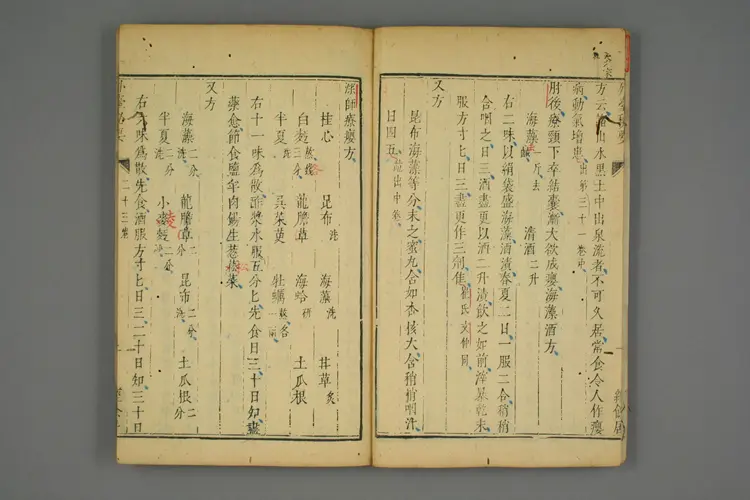 方云出水黑土中出泉流者不可久居常食令人作癭
病動氣增患出第三十一卷中
肘後療頸下卒結囊漸大欲成癭海藻酒方
海藻一斤去 清酒二升
右二味以絹袋盛海藻酒漬春夏二日一服二合稍稍
含嚥之日三酒盡更以酒二升漬飲之如前滓暴乾末
服方寸匕日三盡更作三劑佳 文仲同
又方
昆布海藻等分末之蜜丸含如杏核大含稍稍嚥汁
日四五並出中卷
深師療癭方
桂心 昆布洗 海藻洗 甘草炙
白麪三 龍膽草 海蛤研 土瓜根
半夏洗 吳茱萸 牡蠣各一兩
右十一味為散酢漿水服五分匕先食日三十日知盡
藥愈節食鹽羊肉餳生葱菘菜
又方
海藻二分洗 龍膽草二分 昆布二分洗 土瓜根二分
半夏二分洗 小麥麪二分
右六味為散先食酒服方寸匕日三二十日知三十日
二十三卷
經餘居